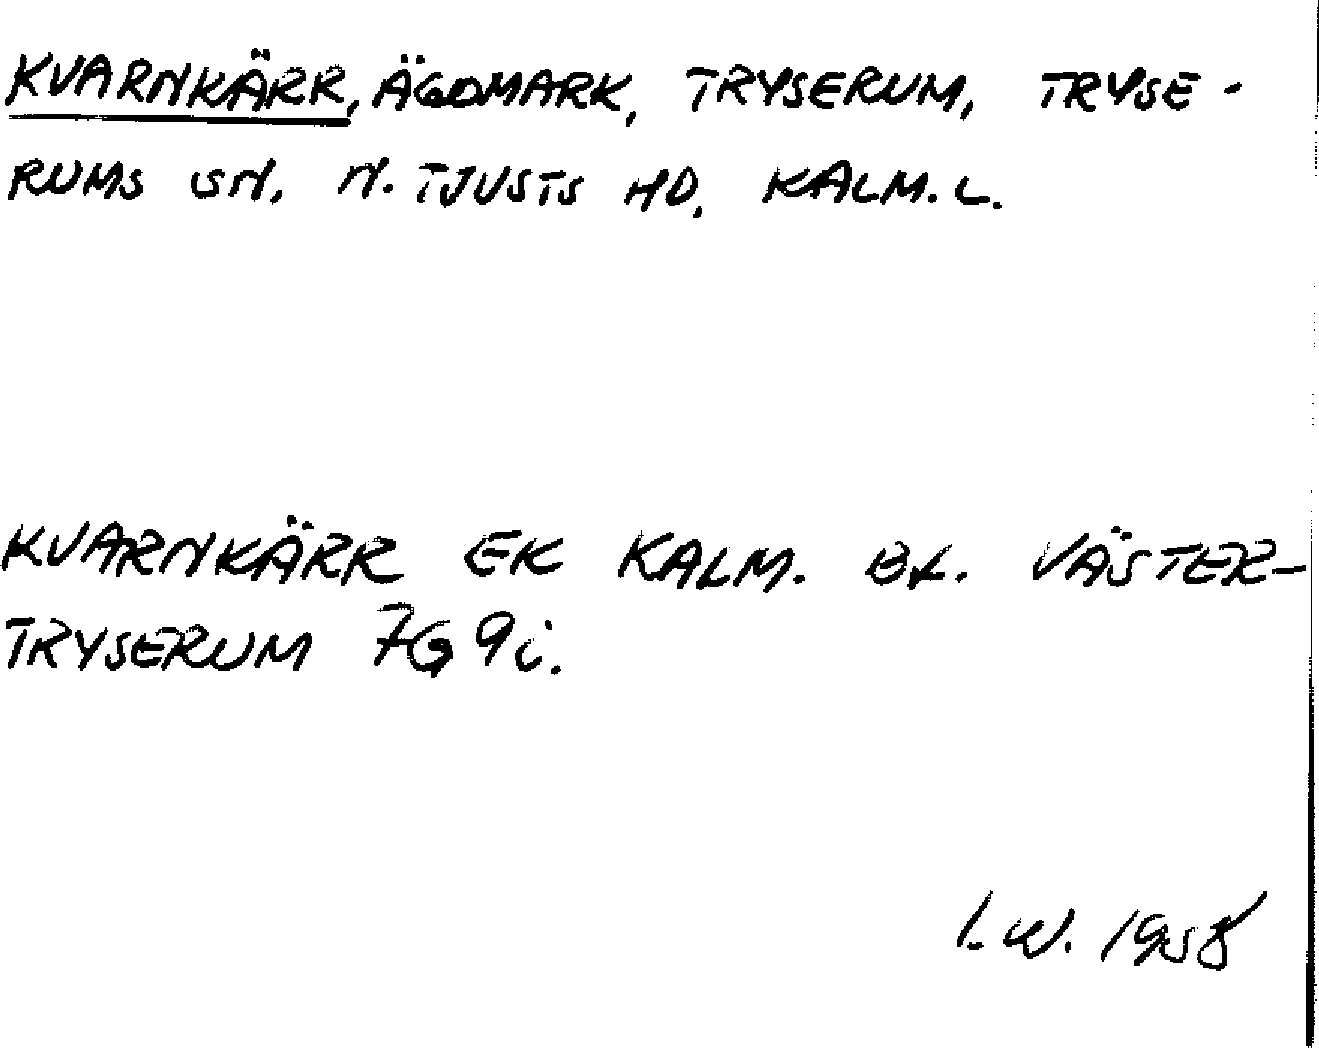 KVARNKÄRR, ÄGOMARK, TRYSERUM, TRYSE-
RUMS SN. N. TJUSTS HD. KALM. L.
KVARNKÄRR EK KALM. BL. VÄSTER-
TRYSERUM 7G 9i.
I.W. 1958